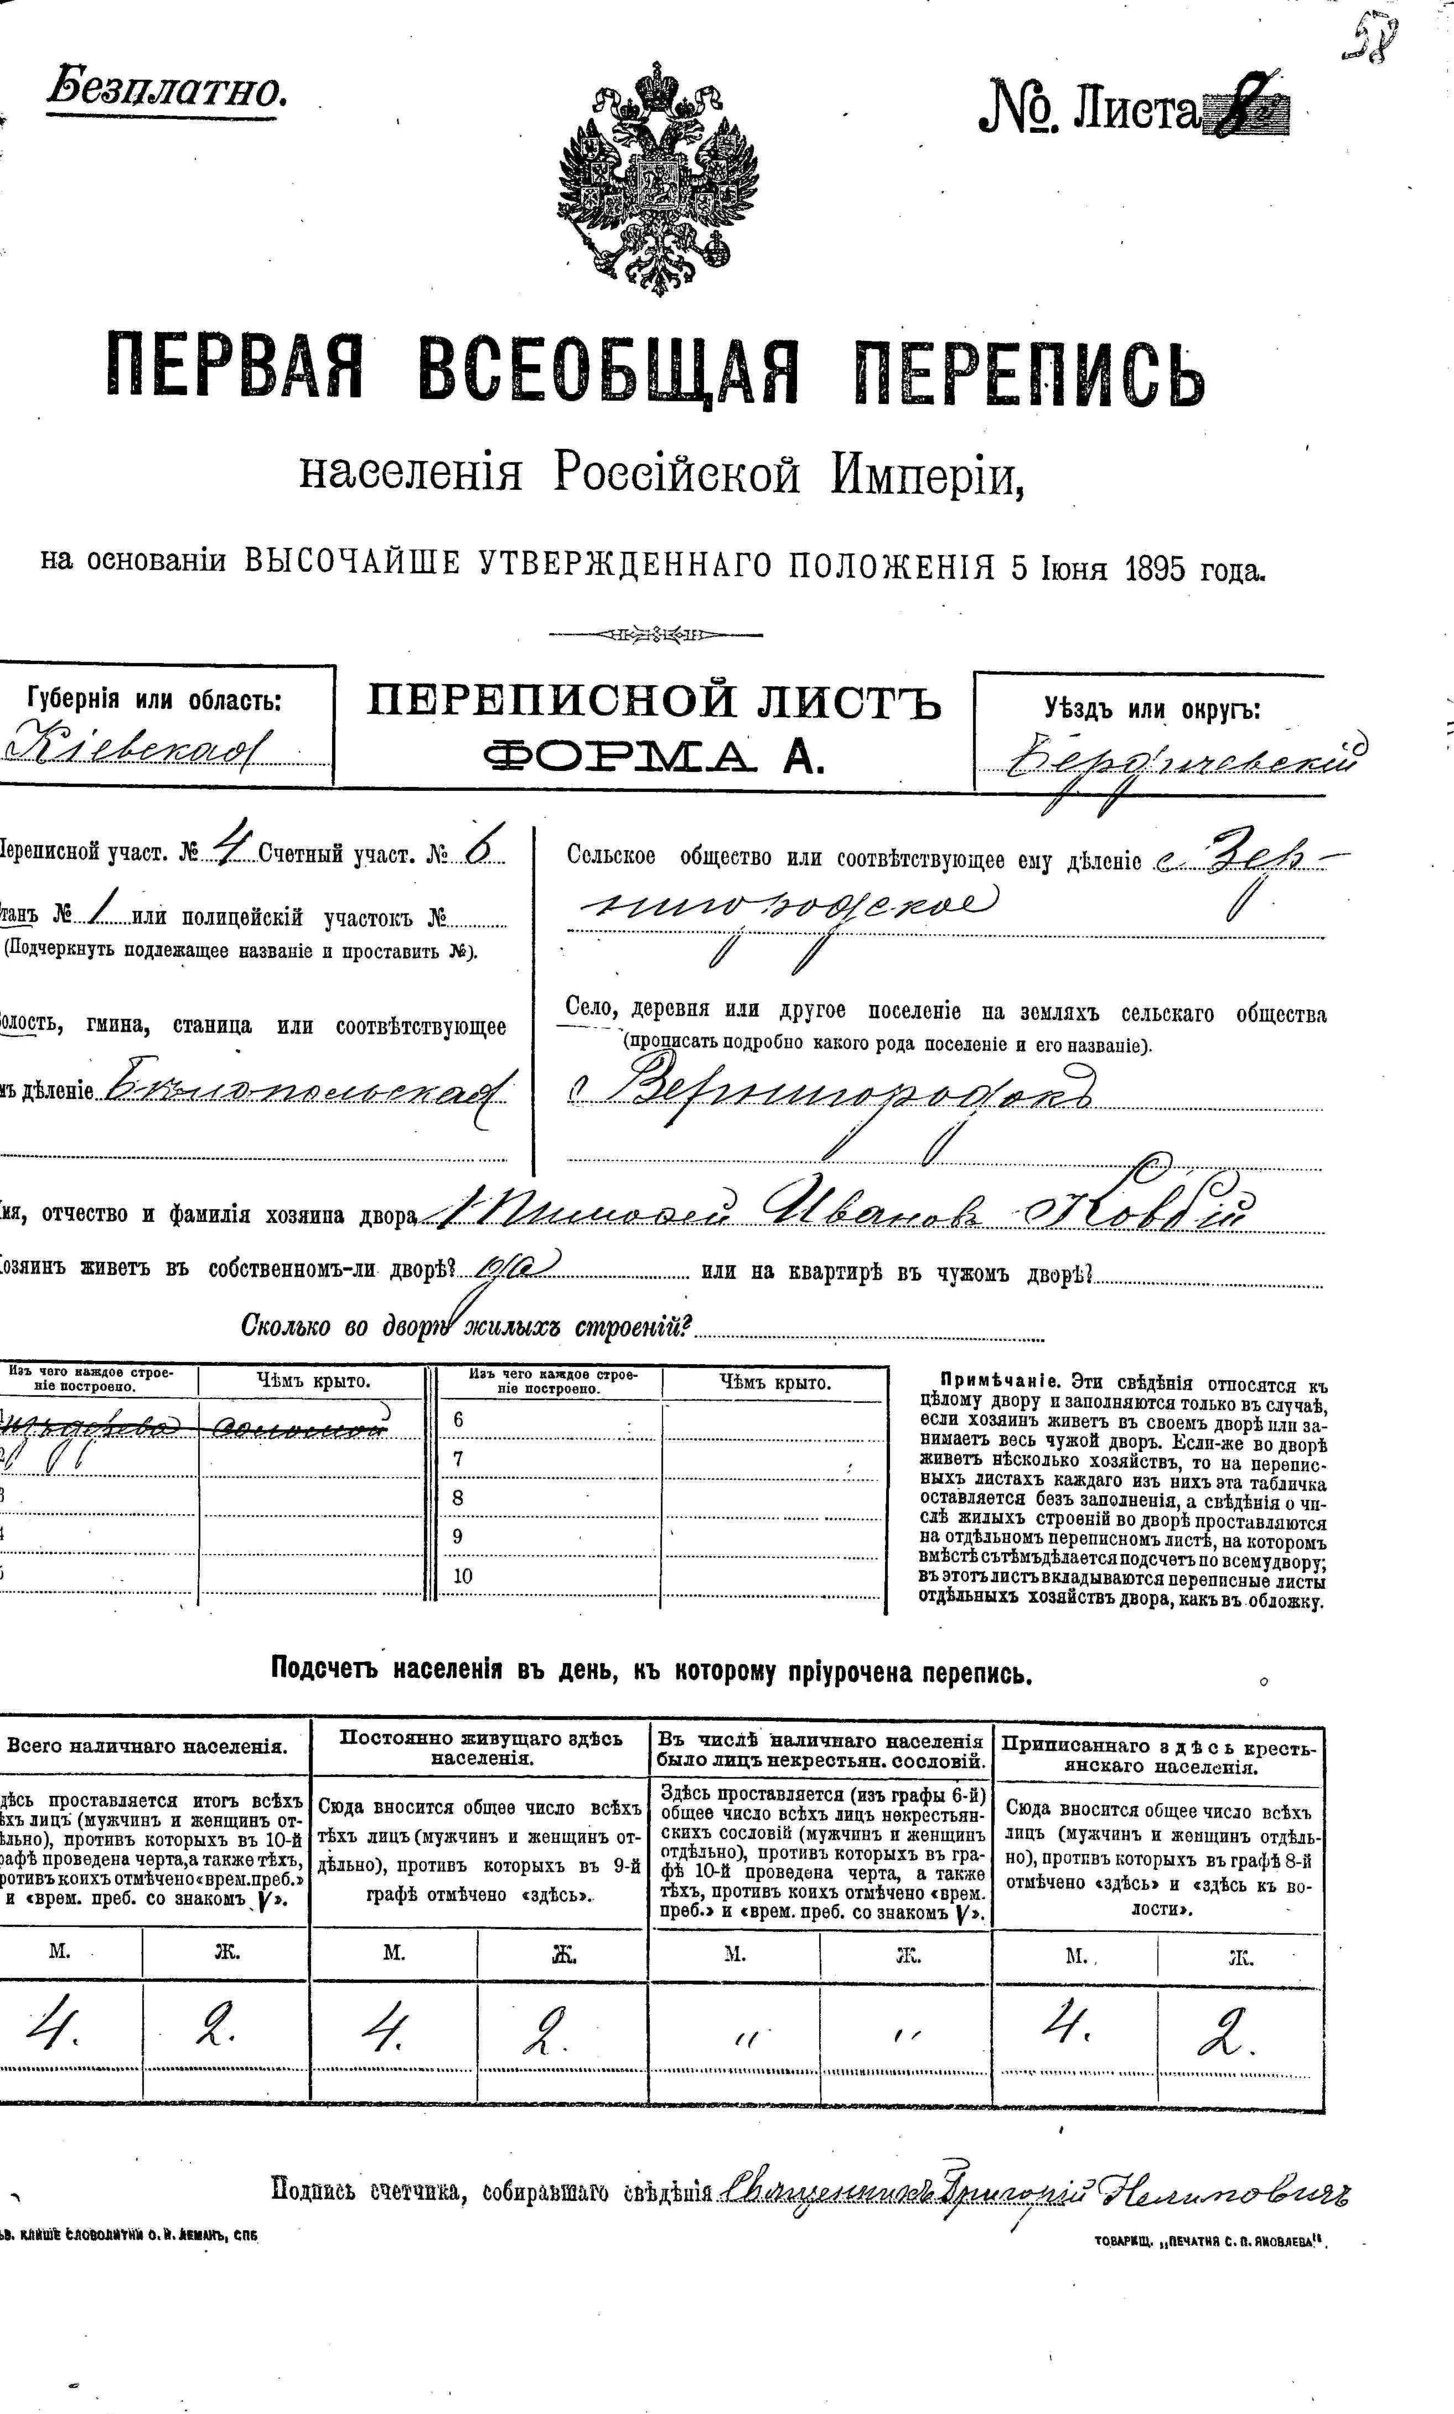 58
Безплатно.
№. Листа 8
ПЕРВАЯ ВСЕОБЩАЯ ПЕРЕПИСЬ
населенія Россійской Имперіи,
на основаніи ВЫСОЧАЙШЕ УТВЕРЖДЕННАГО ПОЛОЖЕНІЯ 5 Іюня 1895 года.
Губернія или область:
Кіевская
ПЕРЕПИСНОЙ ЛИСТЪ
ФОРМА А.
Уѣздъ или округъ:
Бердичевскій
Переписной участ. № 4 Счетный участ. № 6
танъ № 1 или полицейскій участокъ №
(Подчеркнуть подлежащее названіе и проставить №).
олость, гмина, станица или соотвѣтствующее
мъ дѣленіе Бѣлопольская
Сельское общество или соотвѣтствующее ему дѣленіе с Вер-
нигородское
Село, деревня или другое поселеніе на земляхъ сельскаго общества
(прописать подробно какого рода поселеніе и его названіе).
с Вернигородокъ
мя, отчество и фамилія хозяина двора Тимофей Ивановъ
Хозяинъ живетъ въ собственномъ-ли дворѣ? да или на квартирѣ въ чужомъ дворѣ?
Сколько во дворѣ жилыхъ строеній?
Изъ чего каждое строе-
ніе построено.
Чѣмъ крыто.
Изъ чего каждое строе-
ніе построено.
Чѣмъ крыто.
изъ дерева соломой
6
2
7
3
8
4
9
5
10
Примѣчаніе. Эти свѣдѣнія относятся къ
цѣлому двору и заполняются только въ случаѣ,
если хозяинъ живетъ въ своемъ дворѣ или за-
нимаетъ весь чужой дворъ. Если-же во дворѣ
живетъ нѣсколько хозяйствъ, то на перепис-
ныхъ листахъ каждаго изъ нихъ эта табличка
оставляется безъ заполненія, а свѣдѣнія о чи-
слѣ жилыхъ строеній во дворѣ проставляются
на отдѣльномъ переписномъ листѣ, на которомъ
вмѣстѣ съ тѣмъ дѣлается подсчетъ по всему двору;
въ этотъ листъ вкладываются переписные листы
отдѣльныхъ хозяйствъ двора, какъ въ обложку.
Подсчетъ населенія въ день, къ которому пріурочена перепись.
Всего наличнаго населенія.
дѣсь проставляется итогъ всѣхъ
ѣхъ лицъ (мужчинъ и женщинъ от-
ѣльно), противъ которыхъ въ 10-й
рафѣ проведена черта, а также тѣхъ,
ротивъ коихъ отмѣчено «врем. преб.»
и «врем. преб. со знакомъ V».
Постоянно живущаго здѣсь
населенія.
Сюда вносится общее число всѣхъ
тѣхъ лицъ (мужчинъ и женщинъ от-
дѣльно), противъ которыхъ въ 9-й
графѣ отмѣчено «здѣсь».
Въ числѣ наличнаго населенія
было лицъ некрестьян. сословій.
Здѣсь проставляется (изъ графы 6-й)
общее число всѣхъ лицъ некрестьян-
скихъ сословій (мужчинъ и женщинъ
отдѣльно), противъ которыхъ въ гра-
фѣ 10-й проведена черта, а также
тѣхъ, противъ коихъ отмѣчено «врем.
преб.» и «врем. преб. со знакомъ V».
Приписаннаго здѣсь кресть-
янскаго населенія.
Сюда вносится общее число всѣхъ
лицъ (мужчинъ и женщинъ отдѣль-
но), противъ которыхъ въ графѣ 8-й
отмѣчено «здѣсь» и «здѣсь къ во-
лости».
М. Ж. М. Ж. М. Ж. М. Ж.
4. 2. 4. 2. " " 4. 2.
Подпись счетчика, собиравшаго свѣдѣнія Священникъ Григорій
ЬВ. КЛИШЕ СЛОВОЛИТНИ О. И. ЛЕМАНЪ, СПБ
ТОВАРИЩ. „ПЕЧАТНЯ С. П. ЯКОВЛЕВА".